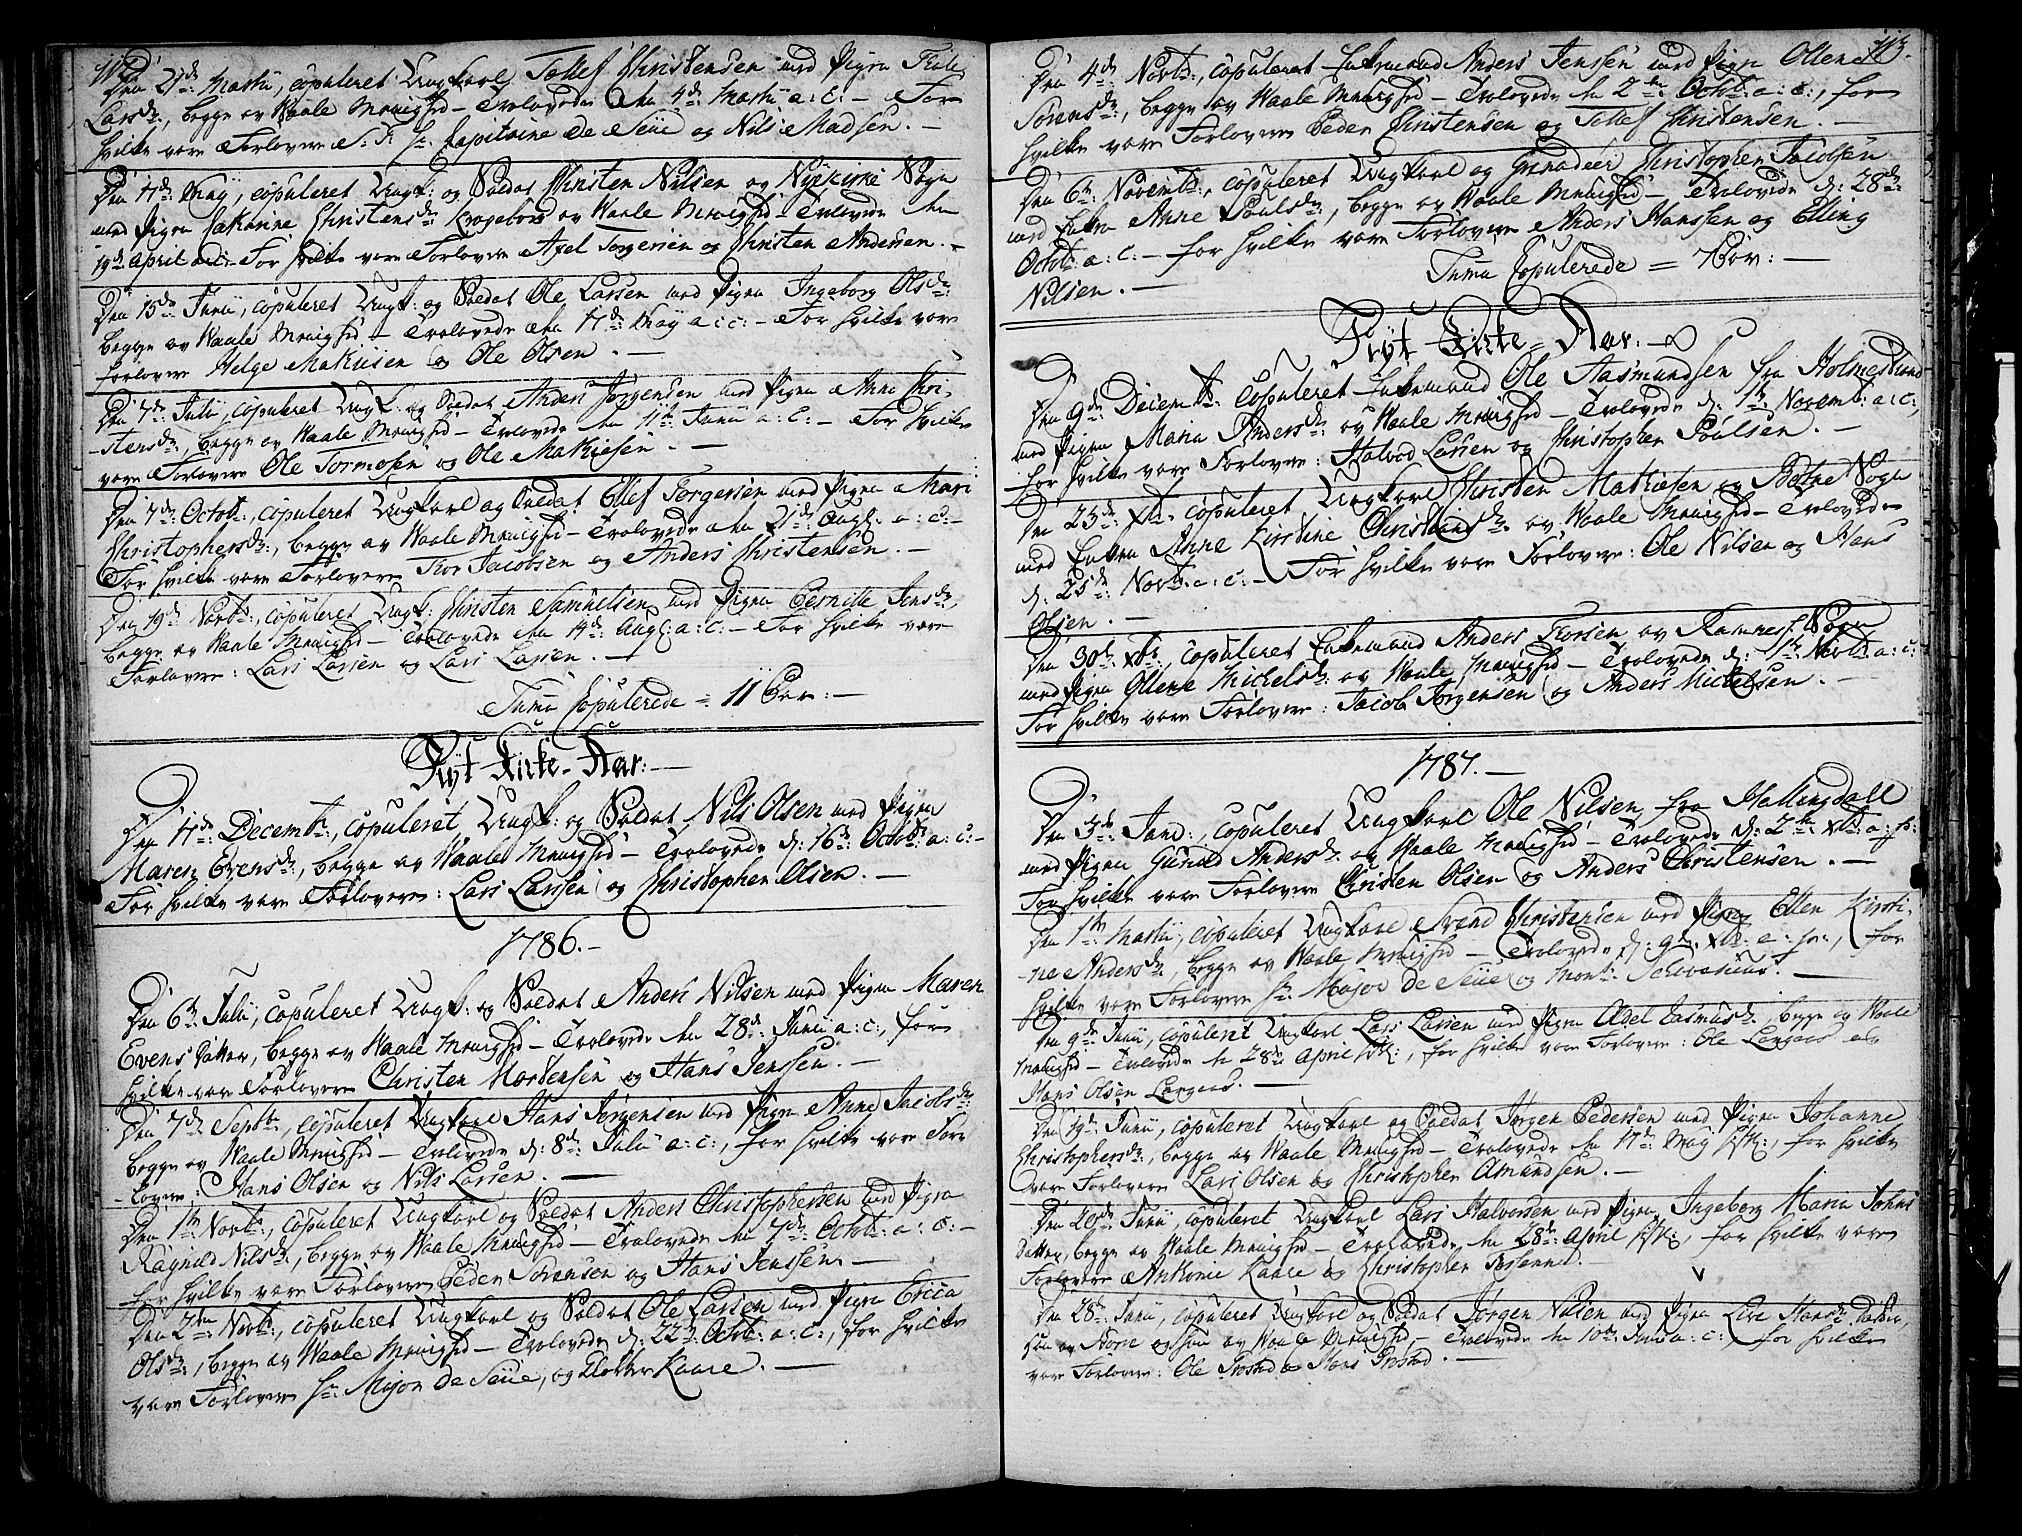 Den 21de Martii, copuleret Ungkarl Tollef Christensen med Pigen
Larsdr:, begge av Waale Menighed – Trolovede den 4de Martii a: c: – For
hvilke vare Forlovere S. T. Hr. Capitaine de Seue og Nils Madsen. –
Den 17de May, copuleret Ungk: og Soldat Christen Nilsen av Nykirke Sogn
med Pigen Cathrine Christensdr av Waale Menighed – Trolovede den
19de April a: c: – For hvilke vare Forlovere Axel Torgersen og Christen Andersen. –
Den 15de Junii, copuleret Ungk: og Soldat Ole Larsen med Pigen Ingeborg Olsdr:
begge av Waale Menighed – Trolovede den 17de May a: c: – For hvilke vare
Forlovere Helge Mathisen og Ole Olsen. –
Den 7de Julii, copuleret Ungk: og Soldat Anders Jörgensen med Pigen Anne Chri-
stensdr:, begge av Waale Menighed – Trolovede den 11te Junii a: c: – For hvilke
vare Forlovere Ole Tormosen og Ole Mathisen. –
Den 7de Octobr:, copuleret Ungkarl og Soldat Ellef Torgersen med Pigen Mari
Christophersdr:, begge av Waale Menighed – Trolovede den 21de Aug: a: c: –
For hvilke vare Forlovere Thor Jacobsen og Anders Christensen. –
Den 19de Novbr:, copuleret Ungk: Christen Samuelsen med Pigen Pernille Jensdr,
begge av Waale Menighed – Trolovede den 14de Aug: a: c: – For hvilke vare
Forlovere: Lars Larsen og Lars Larsen. –
Summa Copulerede = 11 Par: –
Nyt Kirke-Aar: –
Den 17de Decembr:, copuleret Ungk: og Soldat Nils Olsen med Pigen
Maren Evensdr:, begge av Waale Menighed – Trolovede d: 16de Octobr: a: c: –
For hvilke vare Forlovere: Lars Larsen og Christopher Olsen. –
1786. –
Den 6te Julii, copuleret Ungk: og Soldat Anders Nilsen med Pigen Maren
Evens Datter, begge av Waale Menighed – Trolovede den 28de Junii a: c:, for
hvilke vare Forlovere Christen Mortensen og Hans Jenssen. –
Den 7de Septbr:, copuleret Ungkarl Hans Jörgensen med Pigen Anne Jacobsdr:
begge av Waale Menighed – Trolovede d: 8de Julii a: c:, for hvilke vare For-
-lovere: Hans Olsen og Nils Larsen. –
Den 1te Novbr:, copuleret Ungkarl og Soldat Anders Christophersen med Pigen
Ragnild Nilsdr:, begge av Waale Menighed – Trolovede den 7de Octobr: a: c: –
for hvilke vare Forlovere Peder Sörensen og Hans Jenssen. –
Den 2den Novbr:, copuleret Ungkarl og Soldat Ole Larsen med Pigen Ericca
Olsdr:, begge av Waale Menighed – Trolovede d: 22de Octobr: a: c:, for hvilke
vare Forlovere Hr. Major de Seue, og Klokker Kaare. –
113.
Den 4de Novbr:, copuleret Enkemand Anders Jenssen med Pigen Ollene
Sörensdr:, begge av Waale Menighed – Trolovede den 2den Octobr: a: c:, for
hvilke vare Forlovere Peder Christensen og Tollef Christensen. –
Den 6te Novembr:, copuleret Ungkarl og Grenadeer Christopher Jacobsen
med Enken Anne Poulsdr:, begge av Waale Menighed – Trolovede d: 28de
Octobr: a: c: – for hvilke vare Forlovere Anders Hanssen og Elling
Nilsen. –
Summa Copulerede = 7 Par: –
Nyt Kirke-Aar: –
Den 9de Decembr: Copuleret Enkemand Ole Aasmundsen fra Holmestrand
med Pigen Maria Andersdr: av Waale Menighed – Trolovede d: 1te Novembr: a: c:,
for hvilke vare Forlovere: Halvod Larsen og Christopher Poulsen. –
Den 23de Xbr: copuleret Ungkarl Christen Mathiesen av Botne Sogn
med Enken Anne Kirstine Christiansdr: av Waale Menighed – Trolovede
d: 25de Novbr: a: c: – For hvilke vare Forlovere: Ole Nilsen og Hans
Olsen. –
Den 30te Xbr:, copuleret Enkemand Anders Thorsen av Ramness Sogn
med Pigen Ollene Michelsdr: av Waale Menighed – Trolovede d: Novbr: a: c:
For hvilke vare Forlovere: Jacob Jörgensen og Anders Michelsen. –
1787. –
Den 3de Janr:, copuleret Ungkarl Ole Nilsen, fra Hallingdall
med Pigen Gunild Andersdr: av Waale Menighed – Trolovede d: 2den Xbr: a: p:
For hvilke vare Forlovere Christen Olsen og Anders Christensen. –
Den 1te Martii, copuleret Ungkarl Svend Christensen med Pigen Ellen Kirsti-
-ne Andersdr:, begge av Waale Menighed – Trolovede d: 9de Xbr: a: p:, for
hvilke vare Forlovere Hr. Major de Seue og Monsr: Schvenius. –
Den 9de Junii, copuleret Ungkarl Lars Larsen med Pigen Abel Rasmusdr:, begge av Waale
Menighed – Trolovede den 28de April sistl:, for hvilke vare Forlovere: Ole Langaas og
Hans Olsen Langaas. –
Den 19de Junii, copuleret Ungkarl og Soldat Jörgen Pedersen med Pigen Johanne
Christophersdr:, begge av Waale Menighed – Trolovede den 17de May sistl:, for hvilke
vare Forlovere Lars Olsen og Christopher Amundsen. –
Den 20de Junii, copuleret Ungkarl Lars Halvorsen med Pigen Ingeborg Maria Johns
Datter, begge av Waale Menighed – Trolovede den 28de April sistl:, for hvilke vare
Forlovere Anthonie Kaare og Christopher
Den 28de Junii, copuleret Ungkarl og Soldat Jörgen Nilsen med Pigen Live Hans Datter,
han av og hun av Waale Menighed, – Trolovede den 10de Junii a: c:, for hvilke
vare Forlovere: Ole og Hans –